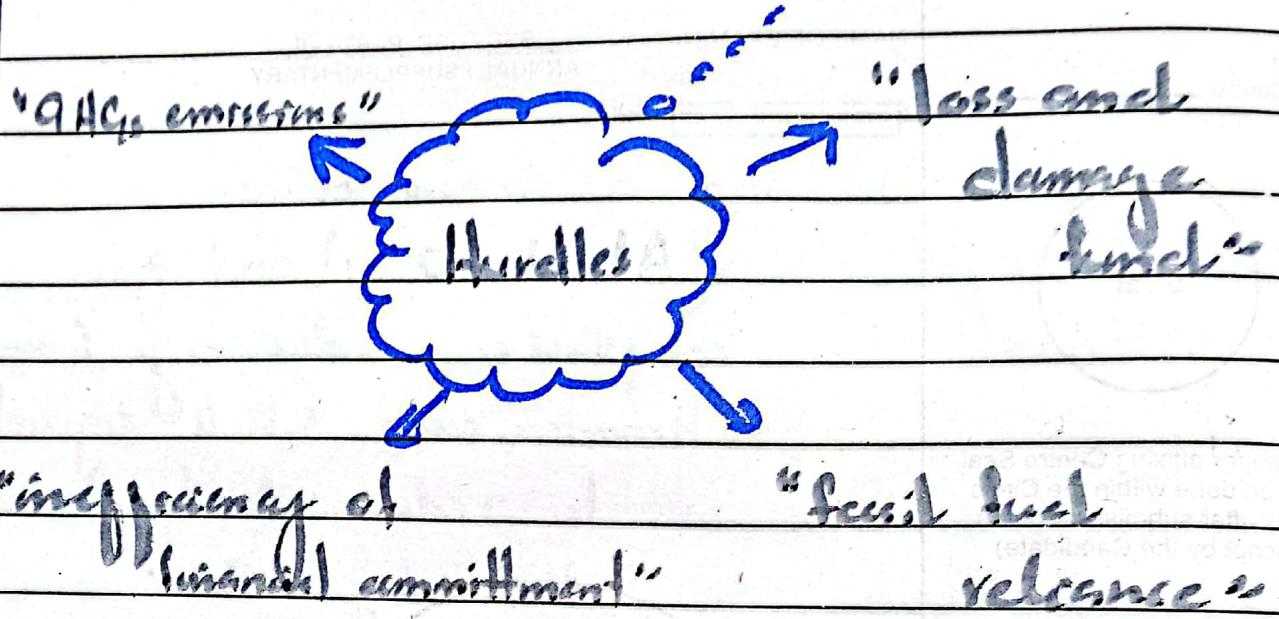 "GHGs emissions"
"loss and
damage
fund"
Hurdles
"inefficiency of
financial committment"
"fossil fuel
reliance"